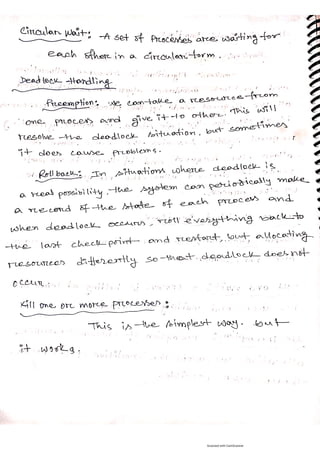 Circular wait: - A set of Processes are waiting for
each other in a circular form.
Deadlock Handling
Preemption: we can take a resource from
one process and give it to other. This will
resolve the deadlock situation, but sometimes
it does cause problems.
Rollback: In situations where deadlock is
a real possibility the system can periodically make
a record of the state of each process and
when deadlock occurs, roll everything back to
the last check point and restart, but allocating
resources differently so that deadlock does not
occur.
Kill one or more processes:
This is the simplest way. but
it work.
Scanned with CamScanner